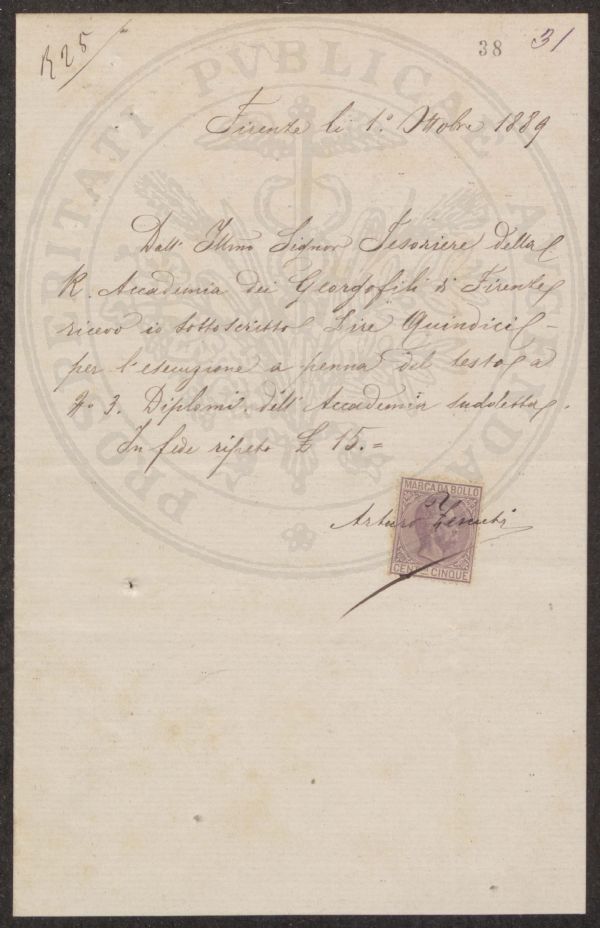 R 25
38
31
Firenze li 1.º Ottobre 1889
Dall' Illmo Signor Tesoriere della
R. Accademia dei Georgofili di Firenze
ricevo io sottoscritto Lire Quindici -
per l'esecuzione a penna del testo a
Nº 3. Diplomi dell' Accademia sudetta.
In fede ripeto £ 15.=
MARCA DA BOLLO
Arturo
CENT. CINQUE
PROSPERITATI PVBLICAE AVGENDAE